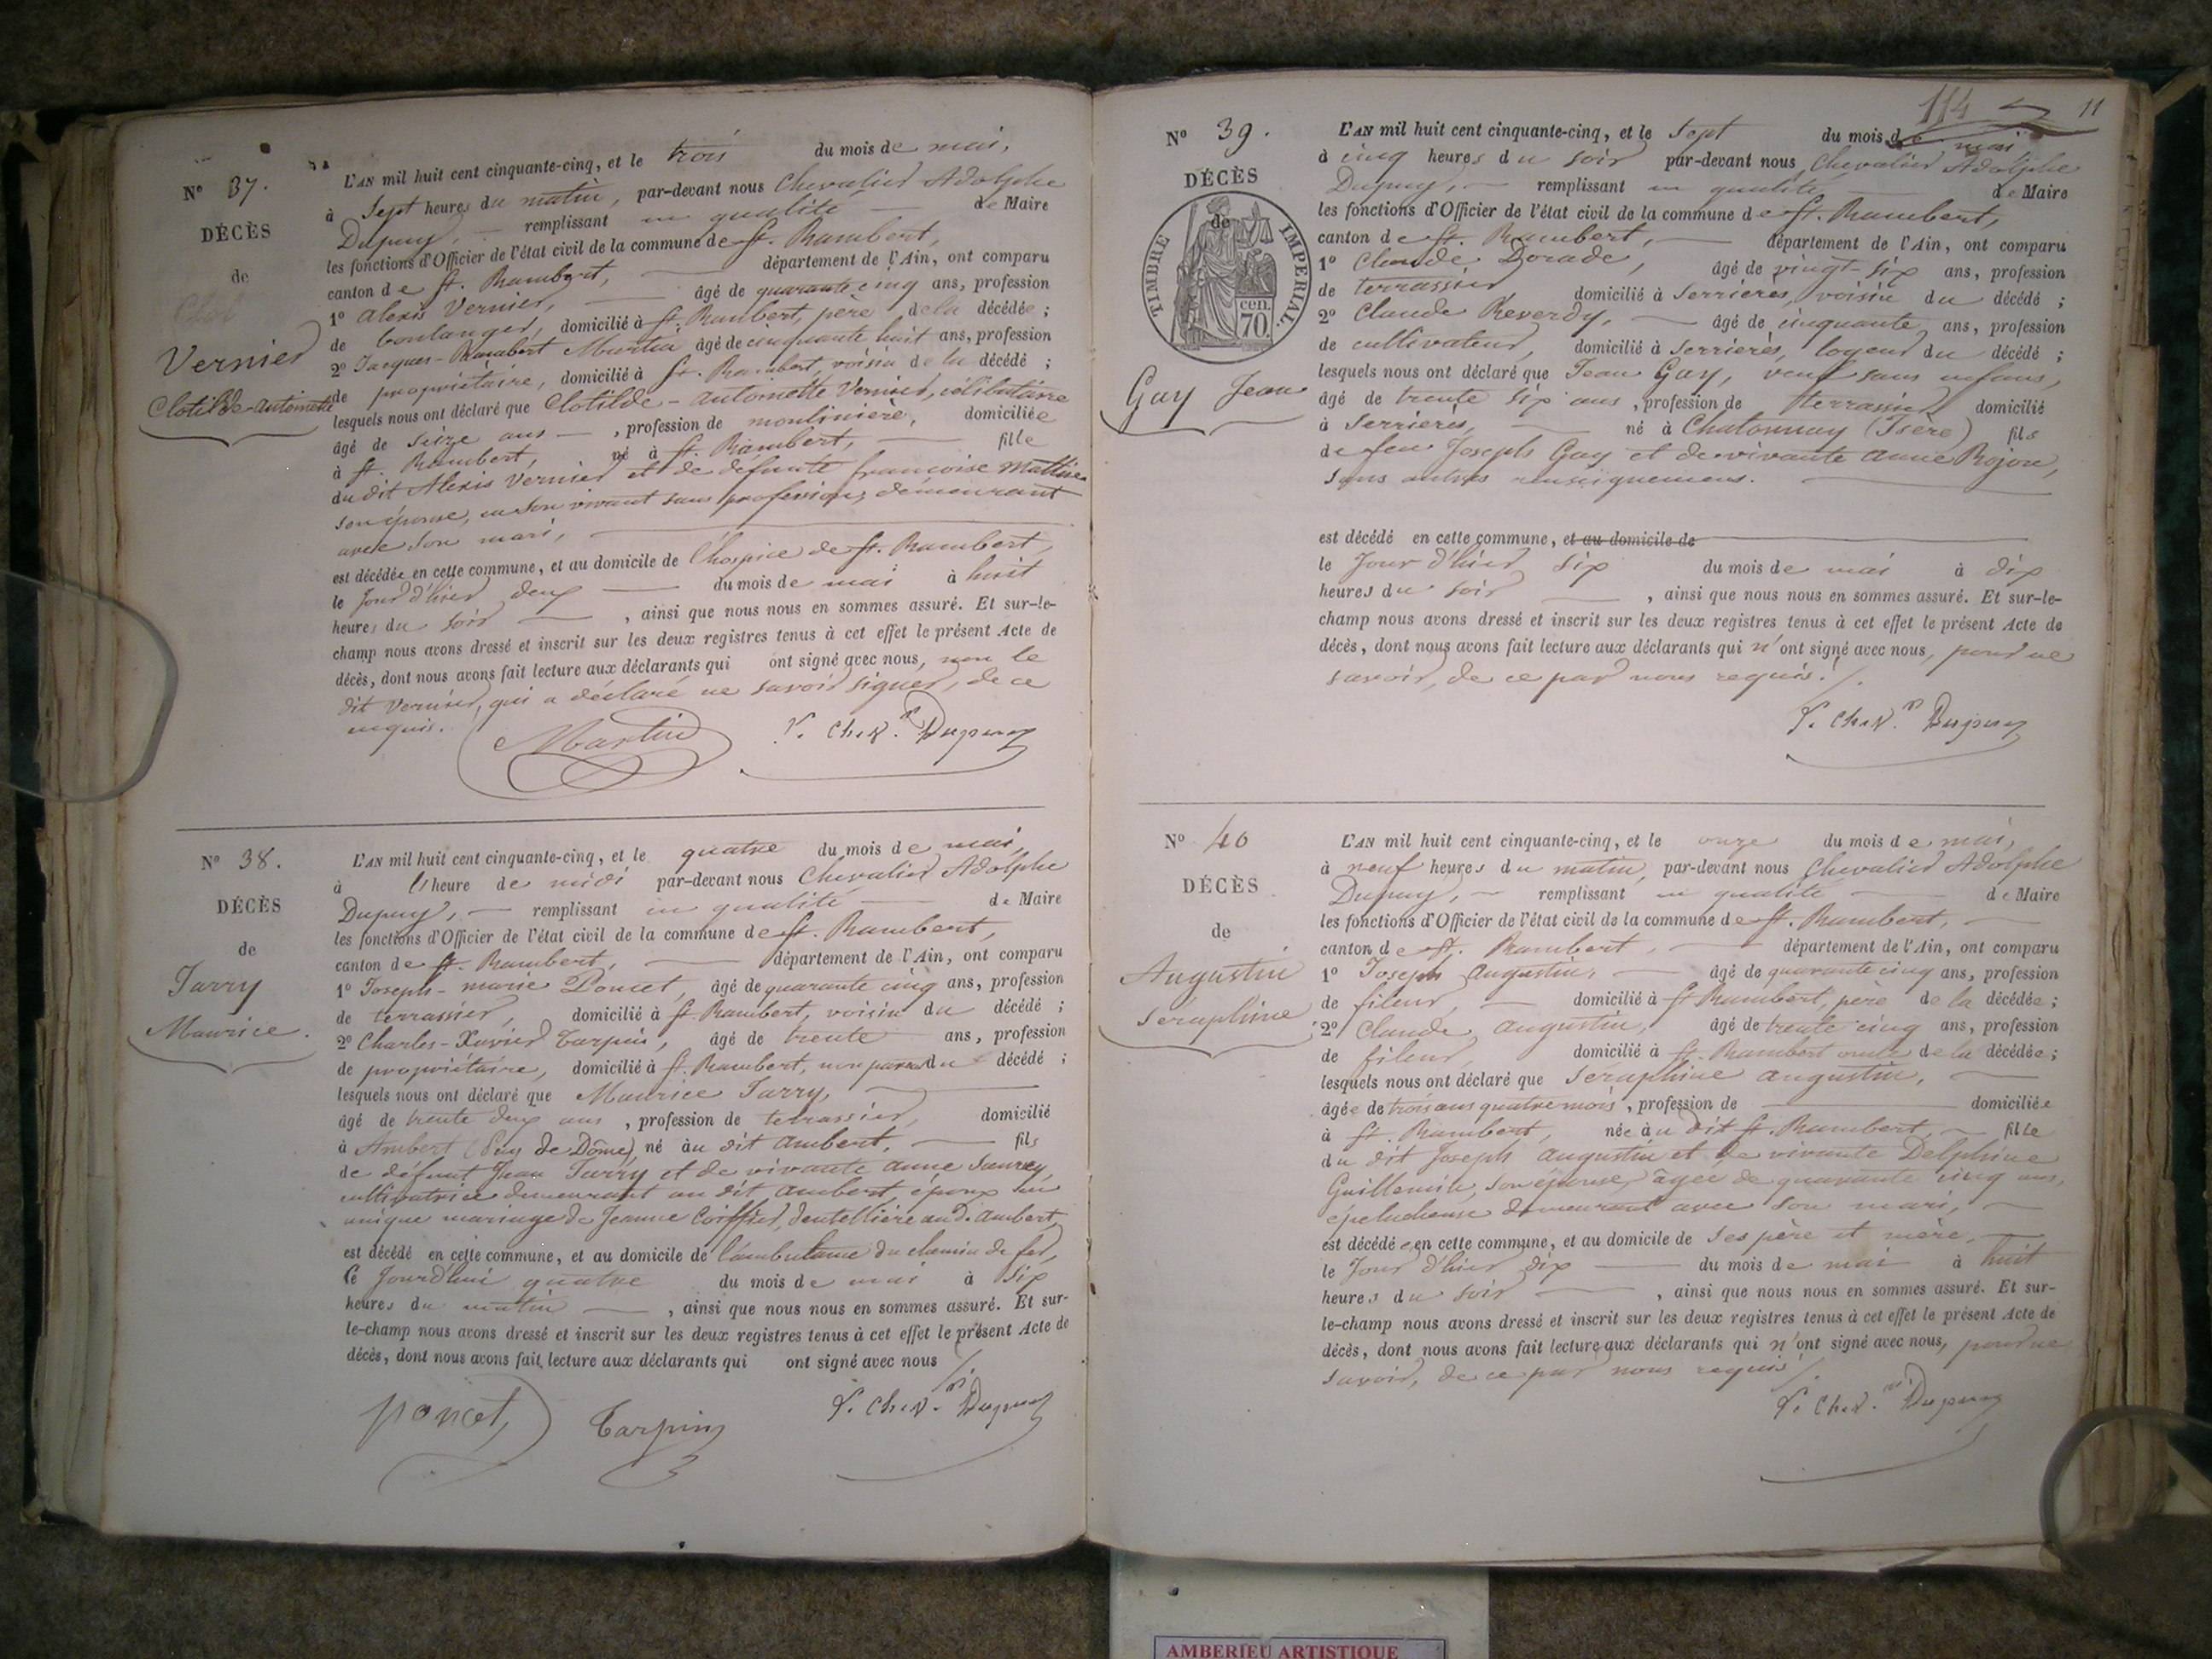 N° 37.
DÉCÈS
de
Vernier
Clotilde-Antoinette
L'AN mil huit cent cinquante-cinq, et le trois du mois de mai,
à Sept heures du matin, par-devant nous Chevalier Adolphe
Dupuy, remplissant en qualité de Maire
les fonctions d'Officier de l'état civil de la commune de St. Rambert,
canton de St. Rambert, département de l'Ain, ont comparu
1° Alexis Vernier, âgé de quarante cinq ans, profession
de boulanger, domicilié à St. Rambert, père de la décédée ;
2° Jacques-Rambert Martin âgé de cinquante huit ans, profession
de propriétaire, domicilié à St. Rambert, voisin de la décédée ;
lesquels nous ont déclaré que Clotilde-Antoinette Vernier, célibataire
âgé de seize ans, profession de moulinière, domiciliée
à St. Rambert, né à St. Rambert, fille
du dit Alexis Vernier et de défunte françoise
son épouse, en son vivant sans profession, demeurant
avec son mari,
est décédée en cette commune, et au domicile de l'hospice de St. Rambert,
le Jour d'hier deux du mois de mai à huit
heures du soir, ainsi que nous nous en sommes assuré. Et sur-le-
champ nous avons dressé et inscrit sur les deux registres tenus à cet effet le présent Acte de
décès, dont nous avons fait lecture aux déclarants qui ont signé avec nous, non le
dit Vernier, qui a déclaré ne savoir signer, de ce
requis.
Martin
Chev. Dupuy
N° 38.
DÉCÈS
de
Tarry
Maurice.
L'AN mil huit cent cinquante-cinq, et le quatre du mois de mai,
à l'heure de midi par-devant nous Chevalier Adolphe
Dupuy, remplissant en qualité de Maire
les fonctions d'Officier de l'état civil de la commune de St. Rambert,
canton de St. Rambert, département de l'Ain, ont comparu
1° Joseph-marie Poncet, âgé de quarante cinq ans, profession
de terrassier, domicilié à St. Rambert, voisin du décédé ;
2° Charles-Xavier Tarpin, âgé de trente ans, profession
de propriétaire, domicilié à St. Rambert, non parent du décédé ;
lesquels nous ont déclaré que Maurice Tarry,
âgé de trente deux ans, profession de terrassier, domicilié
à Ambert (Puy de Dôme), né au dit Ambert, fils
de défunt Jean Tarry et de vivante Anne
cultivatrice demeurant au dit Ambert, époux en
unique mariage de Jeanne Coiffier, dentellière aud. Ambert,
est décédé en cette commune, et au domicile de l'ambulance du chemin de fer,
ce Jourd'hui quatre du mois de mai à six
heures du matin, ainsi que nous nous en sommes assuré. Et sur-
le-champ nous avons dressé et inscrit sur les deux registres tenus à cet effet le présent Acte de
décès, dont nous avons fait lecture aux déclarants qui ont signé avec nous
poncet
Tarpin
Chev. Dupuy
114
11
N° 39.
DÉCÈS
de
TIMBRE IMPERIAL.
cen.
70.
Gay Jean
L'AN mil huit cent cinquante-cinq, et le sept du mois de mai
à cinq heures du soir par-devant nous Chevalier Adolphe
Dupuy, remplissant en qualité de Maire
les fonctions d'Officier de l'état civil de la commune de St. Rambert,
canton de St. Rambert, département de l'Ain, ont comparu
1° Claude Dorade, âgé de vingt-six ans, profession
de terrassier, domicilié à Serrières, voisin du décédé ;
2° Claude Reverdy, âgé de cinquante ans, profession
de cultivateur, domicilié à Serrières, logeur du décédé ;
lesquels nous ont déclaré que Jean Gay, veuf sans enfans,
âgé de trente six ans, profession de terrassier domicilié
à Serrières, né à Chatonnay (Isère) fils
de feu Joseph Gay et de vivante Anne Rojon,
sans autres renseignemens.
est décédé en cette commune, et au domicile de
le Jour d'hier six du mois de mai à dix
heures du soir, ainsi que nous nous en sommes assuré. Et sur-le-
champ nous avons dressé et inscrit sur les deux registres tenus à cet effet le présent Acte de
décès, dont nous avons fait lecture aux déclarants qui n'ont signé avec nous, pour ne
savoir, de ce par nous requis.
Chev. Dupuy
N° 40
DÉCÈS
de
Augustin
Séraphine
L'AN mil huit cent cinquante-cinq, et le onze du mois de mai,
à neuf heures du matin, par-devant nous Chevalier Adolphe
Dupuy, remplissant en qualité de Maire
les fonctions d'Officier de l'état civil de la commune de St. Rambert,
canton de St. Rambert, département de l'Ain, ont comparu
1° Joseph Augustin, âgé de quarante cinq ans, profession
de fileur, domicilié à St Rambert, père de la décédée ;
2° Claude Augustin, âgé de trente cinq ans, profession
de fileur, domicilié à St. Rambert oncle de la décédée ;
lesquels nous ont déclaré que Séraphine Augustin,
âgée de trois ans quatre mois, profession de domiciliée
à St. Rambert, née au dit St. Rambert, fille
du dit Joseph Augustin et de vivante Delphine
Guillemin, son épouse, âgée de quarante cinq ans,
éplucheuse demeurant avec son mari,
est décédée en cette commune, et au domicile de ses père et mère,
le Jour d'hier dix du mois de mai à huit
heures du soir, ainsi que nous nous en sommes assuré. Et sur-
le-champ nous avons dressé et inscrit sur les deux registres tenus à cet effet le présent Acte de
décès, dont nous avons fait lecture aux déclarants qui n'ont signé avec nous, pour ne
savoir, de ce par nous requis
Chev. Dupuy
AMBERIEU ARTISTIQUE